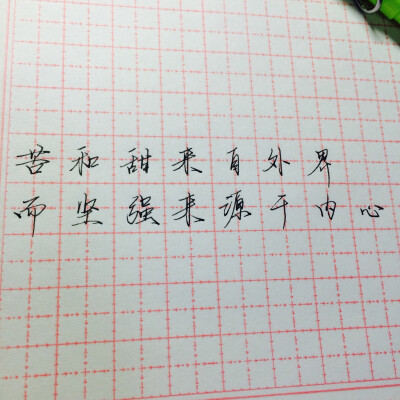 苦和甜来自外界
而坚强来源于内心